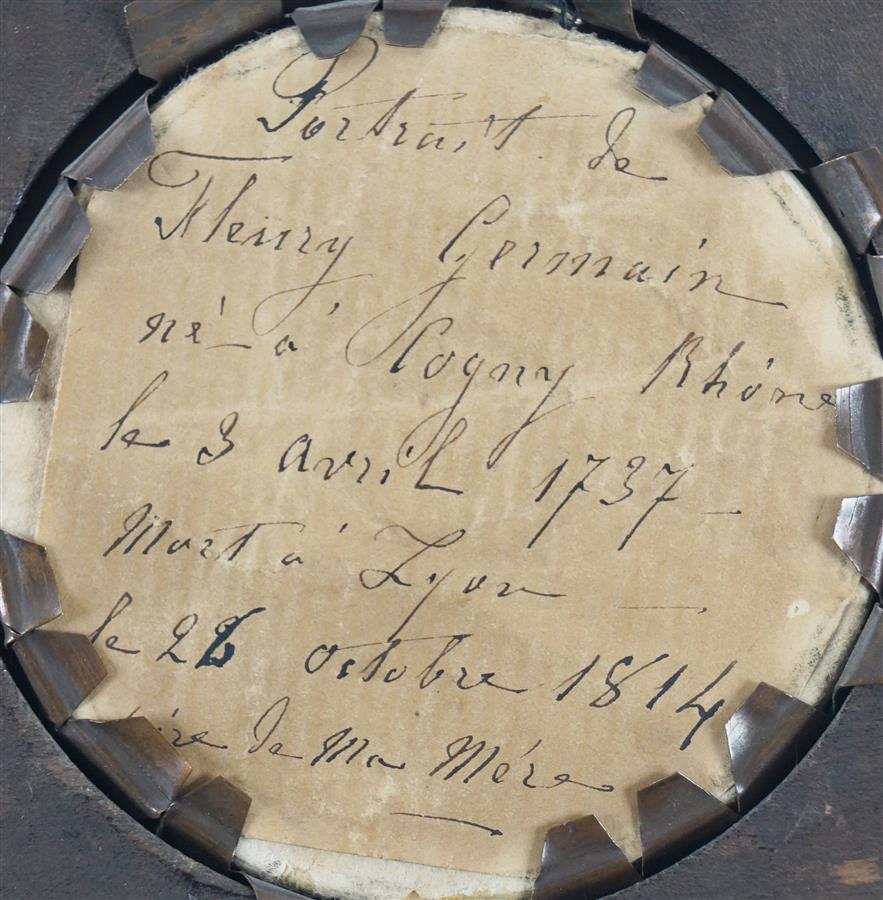 Portrait de
Fleury Germain
né à Cogny Rhône
le 3 avril 1737 —
Mort à Lyon —
le 26 octobre 1814
ère de Ma Mère